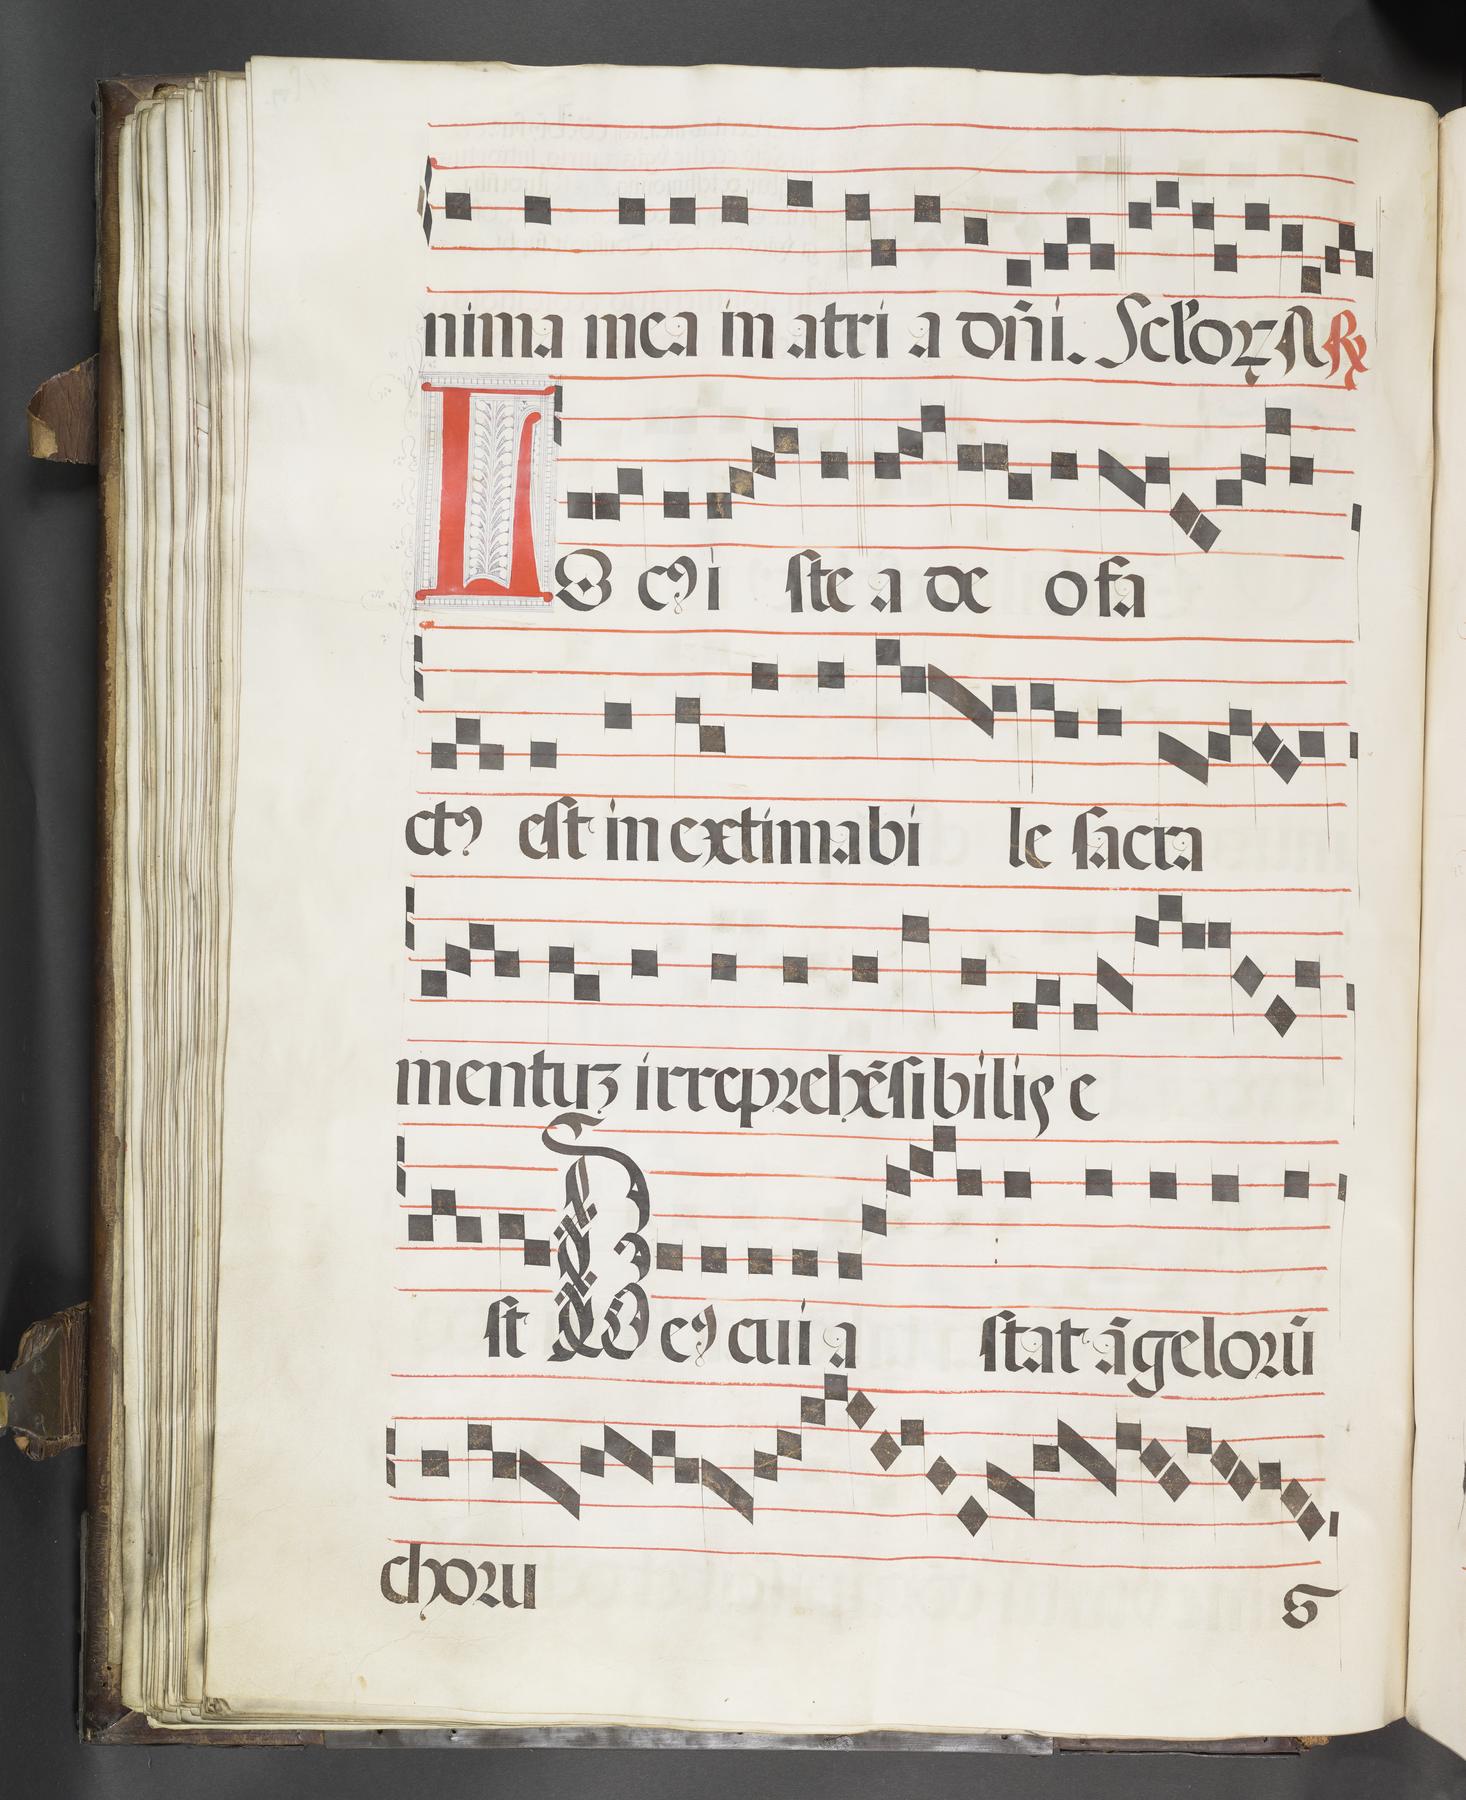 nima mea in atri a dñi. Sclᷣoꝝ A ℟
LOcꝰ i ste a de o fa
ctꝰ est in extimabi le sacra
mentuꝫ irreprehẽsibilis e
st ℣ Deꝰ cui a stat ãgelorũ
choru s